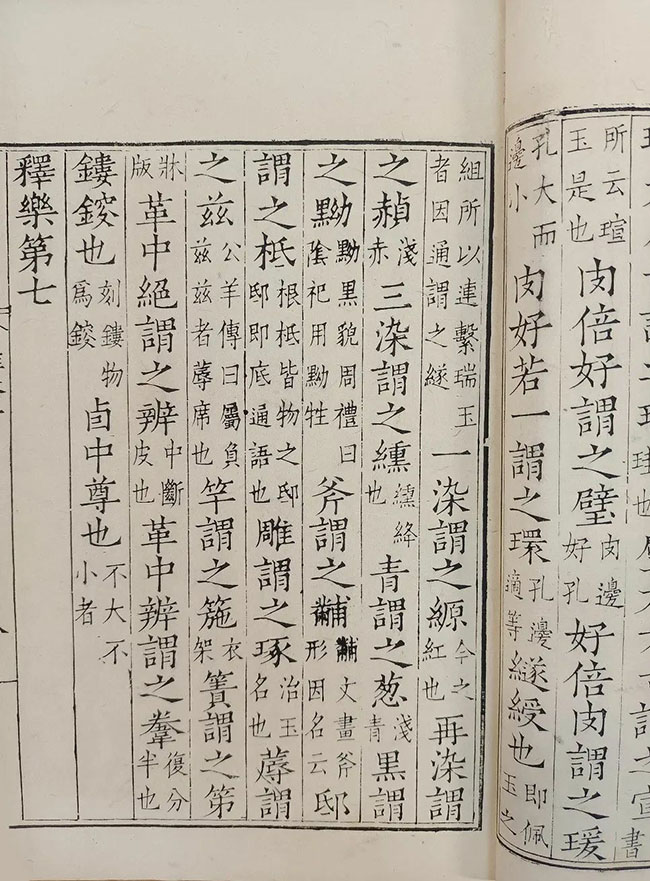 所云瑄玉是也肉倍好謂之璧肉邊好孔好倍肉謂之瑗
孔大而邊小肉好若一謂之環孔邊適等繸綬也即佩玉之
組所以連繫瑞玉者因通謂之繸一染謂之縓今之紅也再染謂
之赬淺赤三染謂之纁纁絳也青謂之葱淺青黑謂
之黝黝黑貌周禮曰陰祀用黝牲斧謂之黼黼文畫斧形因名云邸
謂之柢根柢皆物之邸邸即底通語也雕謂之琢治玉名也蓐謂
之茲公羊傳曰屬負茲茲者蓐席也竿謂之箷衣架簀謂之笫
牀版革中絕謂之辨中斷皮也革中辨謂之韏復分半也
鏤鎪也刻鏤物爲鎪卣中尊也不大不小者
釋樂第七